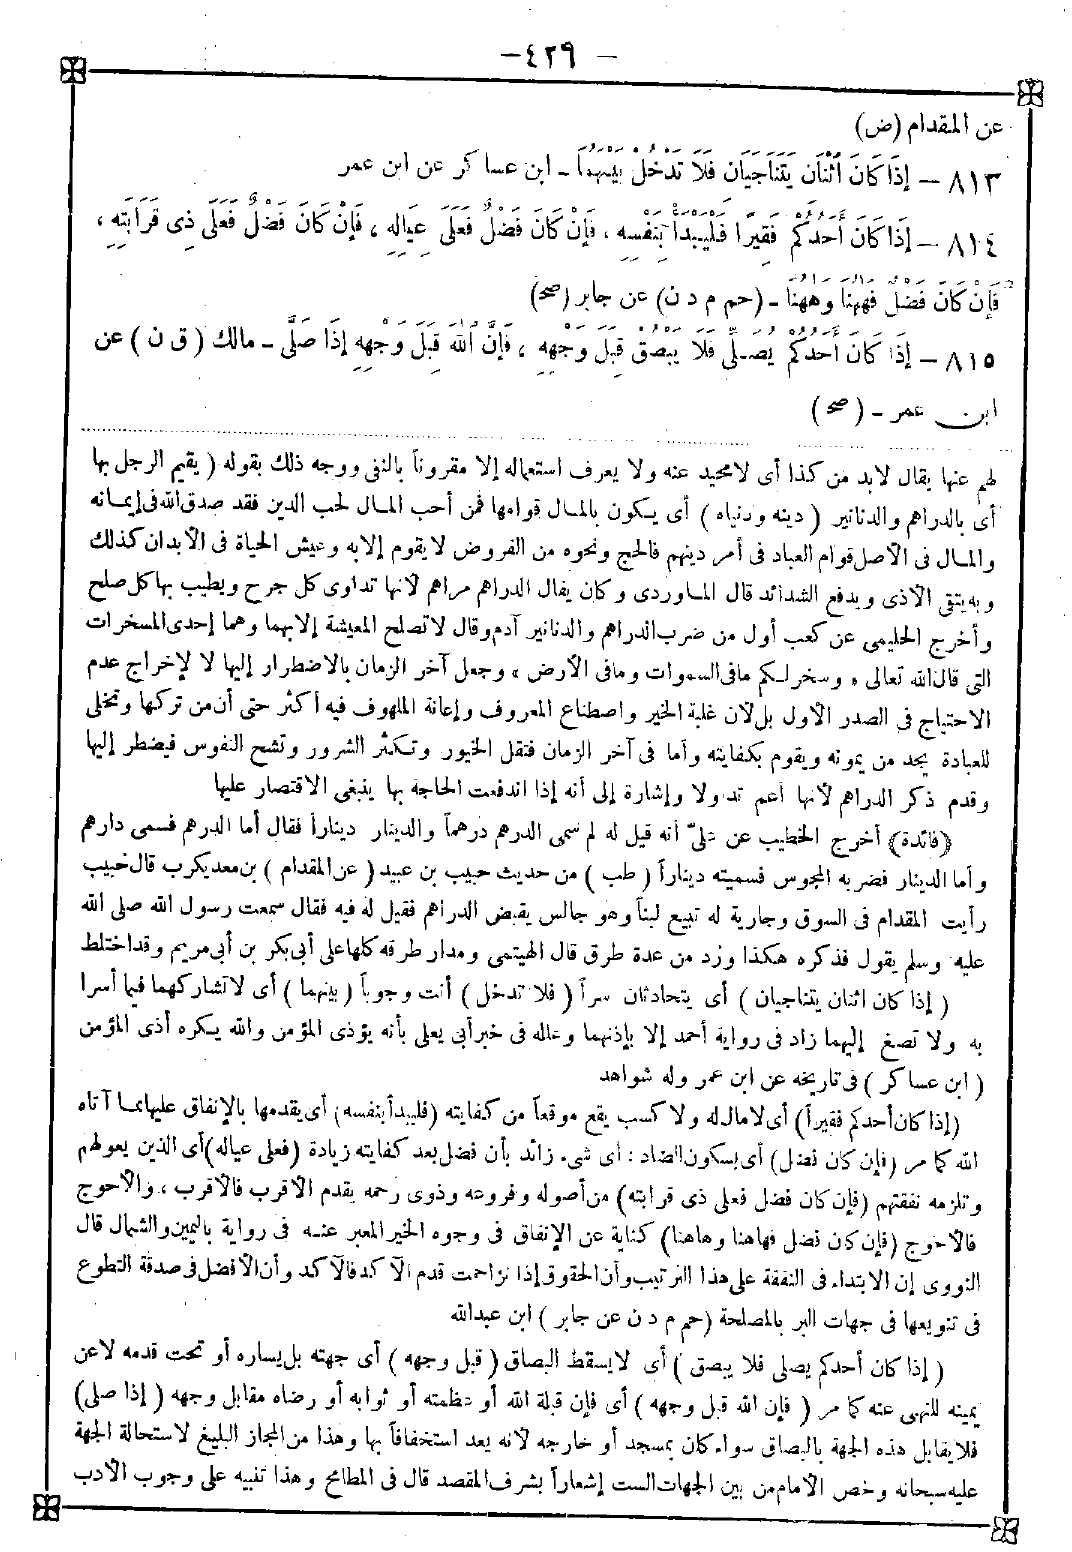 – ٤٢٩ –
عن المقدام (ض)
٨١٣ – إِذَا كَانَ اثْنَانِ يَتَنَاجَيَانِ فَلَا تَدْخُلْ بَيْنَهُمَا - ابن عساكر عن ابن عمر
٨١٤ – إِذَا كَانَ أَحَدُكُمْ فَقِيرًا فَلْيَبْدَأْ بِنَفْسِهِ ، فَإِنْ كَانَ فَضْلٌ فَعَلَى عِيَالِهِ ، فَإِنْ كَانَ فَضْلٌ فَعَلَى ذِى قَرَابَتِهِ ،
فَإِنْ كَانَ فَضْلٌ فَهَهُنَا وَهَهُنَا - (حم م د ن) عن جابر (صح)
٨١٥ – إِذَا كَانَ أَحَدُكُمْ يُصَلِّى فَلَا يَبْصُقْ قِبَلَ وَجْهِهِ ، فَإِنَّ اللهَ قِبَلَ وَجْهِهِ إِذَا صَلَّى - مالك ( ق ن ) عن
ابن عمر - ( صح )
لهم عنها يقال لابد من كذا أى لامحيد عنه ولا يعرف استعماله إلا مقروناً بالنفى ووجه ذلك بقوله ( يقيم الرجل بها
أى بالدراهم والدنانير ( دينه ودنياه ) أى يكون بالمال قوامها فمن أحب المال لحب الدين فقد صدق الله فى إيمانه
والمال فى الأصل قوام العباد فى أمر دينهم فالحج ونحوه من الفروض لا يقوم إلا به وعيش الحياة فى الأبدان كذلك
وبه يتقى الأذى ويدفع الشدائد قال الماوردى وكان يقال الدراهم مراهم لأنها تداوى كل جرح ويطيب بها كل صلح
وأخرج الحليمى عن كعب أول من ضرب الدراهم والدنانير آدم وقال لا تصلح المعيشة إلا بهما وهما إحدى المسخرات
التى قال الله تعالى « وسخر لكم مافى السموات ومافى الأرض » وجعل آخر الزمان بالاضطرار إليها لا لإخراج عدم
الاحتياج فى الصدر الأول بل لأن غلبة الخير واصطناع المعروف وإعانة الملهوف فيه أكثر حتى أن من تركها وتخلى
للعبادة يجد من يمونه ويقوم بكفايته وأما فى آخر الزمان فتقل الخيور وتكثر الشرور وتشح النفوس فيضطر إليها
وقدم ذكر الدراهم لأنها أعم تداولا وإشارة إلى أنه إذا اندفعت الحاجة بها ينبغى الاقتصار عليها
﴿فائدة﴾ أخرج الخطيب عن علىّ أنه قيل له لم سمى الدرهم درهماً والدينار ديناراً فقال أما الدرهم فسمى دارهم
وأما الدينار فضربه المجوس فسميته ديناراً ( طب ) من حديث حبيب بن عبيد ( عن المقدام ) بن معد يكرب قال حبيب
رأيت المقدام فى السوق وجارية له تبيع لبناً وهو جالس يقبض الدراهم فقيل له فيه فقال سمعت رسول الله صلى الله
عليه وسلم يقول فذكره هكذا ورد من عدة طرق قال الهيتمى ومدار طرقه كلها على أبى بكر بن أبى مريم وقد اختلط
( إذا كان اثنان يتناجيان ) أى يتحادثان سراً ( فلا تدخل ) أنت وجوباً ( بينهما ) أى لا تشاركهما فيما أسرا
به ولا تصغ إليهما زاد فى رواية أحمد إلا بإذنهما وعلله فى خبر أبى يعلى بأنه يؤذى المؤمن والله يكره أذى المؤمن
( ابن عساكر ) فى تاريخه عن ابن عمر وله شواهد
(إذا كان أحدكم فقيراً) أى لا مال له ولا كسب يقع موقعاً من كفايته (فليبدأ بنفسه) أى يقدمها بالإنفاق عليها مما آتاه
الله كما مر (فإن كان فضل) أى بسكون الضاد : أى شىء زائد بأن فضل بعد كفايته زيادة (فعلى عياله) أى الذين يعولهم
وتلزمه نفقتهم (فإن كان فضل فعلى ذى قرابته) من أصوله وفروعه وذوى رحمه يقدم الأقرب فالأقرب ، والأحوج
فالأحوج (فإن كان فضل فهاهنا وهاهنا) كناية عن الإنفاق فى وجوه الخير المعبر عنه فى رواية باليمين والشمال قال
النووى إن الابتداء فى النفقة على هذا الترتيب وأن الحقوق إذا تزاحمت قدم الآكد فالآكد وأن الأفضل فى صدقة التطوع
فى تنويعها فى جهات البر بالمصلحة (حم م د ن عن جابر ) ابن عبدالله
( إذا كان أحدكم يصلى فلا يبصق ) أى لا يسقط البصاق ( قبل وجهه ) أى جهته بل يساره أو تحت قدمه لا عن
يمينه للنهى عنه كما مر ( فإن الله قبل وجهه ) أى فإن قبلة الله أو عظمته أو ثوابه أو رضاه مقابل وجهه ( إذا صلى)
فلا يقابل هذه الجهة بالبصاق سواء كان بمسجد أو خارجه لأنه يعد استخفافاً بها وهذا من المجاز البليغ لاستحالة الجهة
عليه سبحانه وخص الأمام من بين الجهات الست إشعاراً بشرف المقصد قال فى المطامح وهذا تنبيه على وجوب الأدب